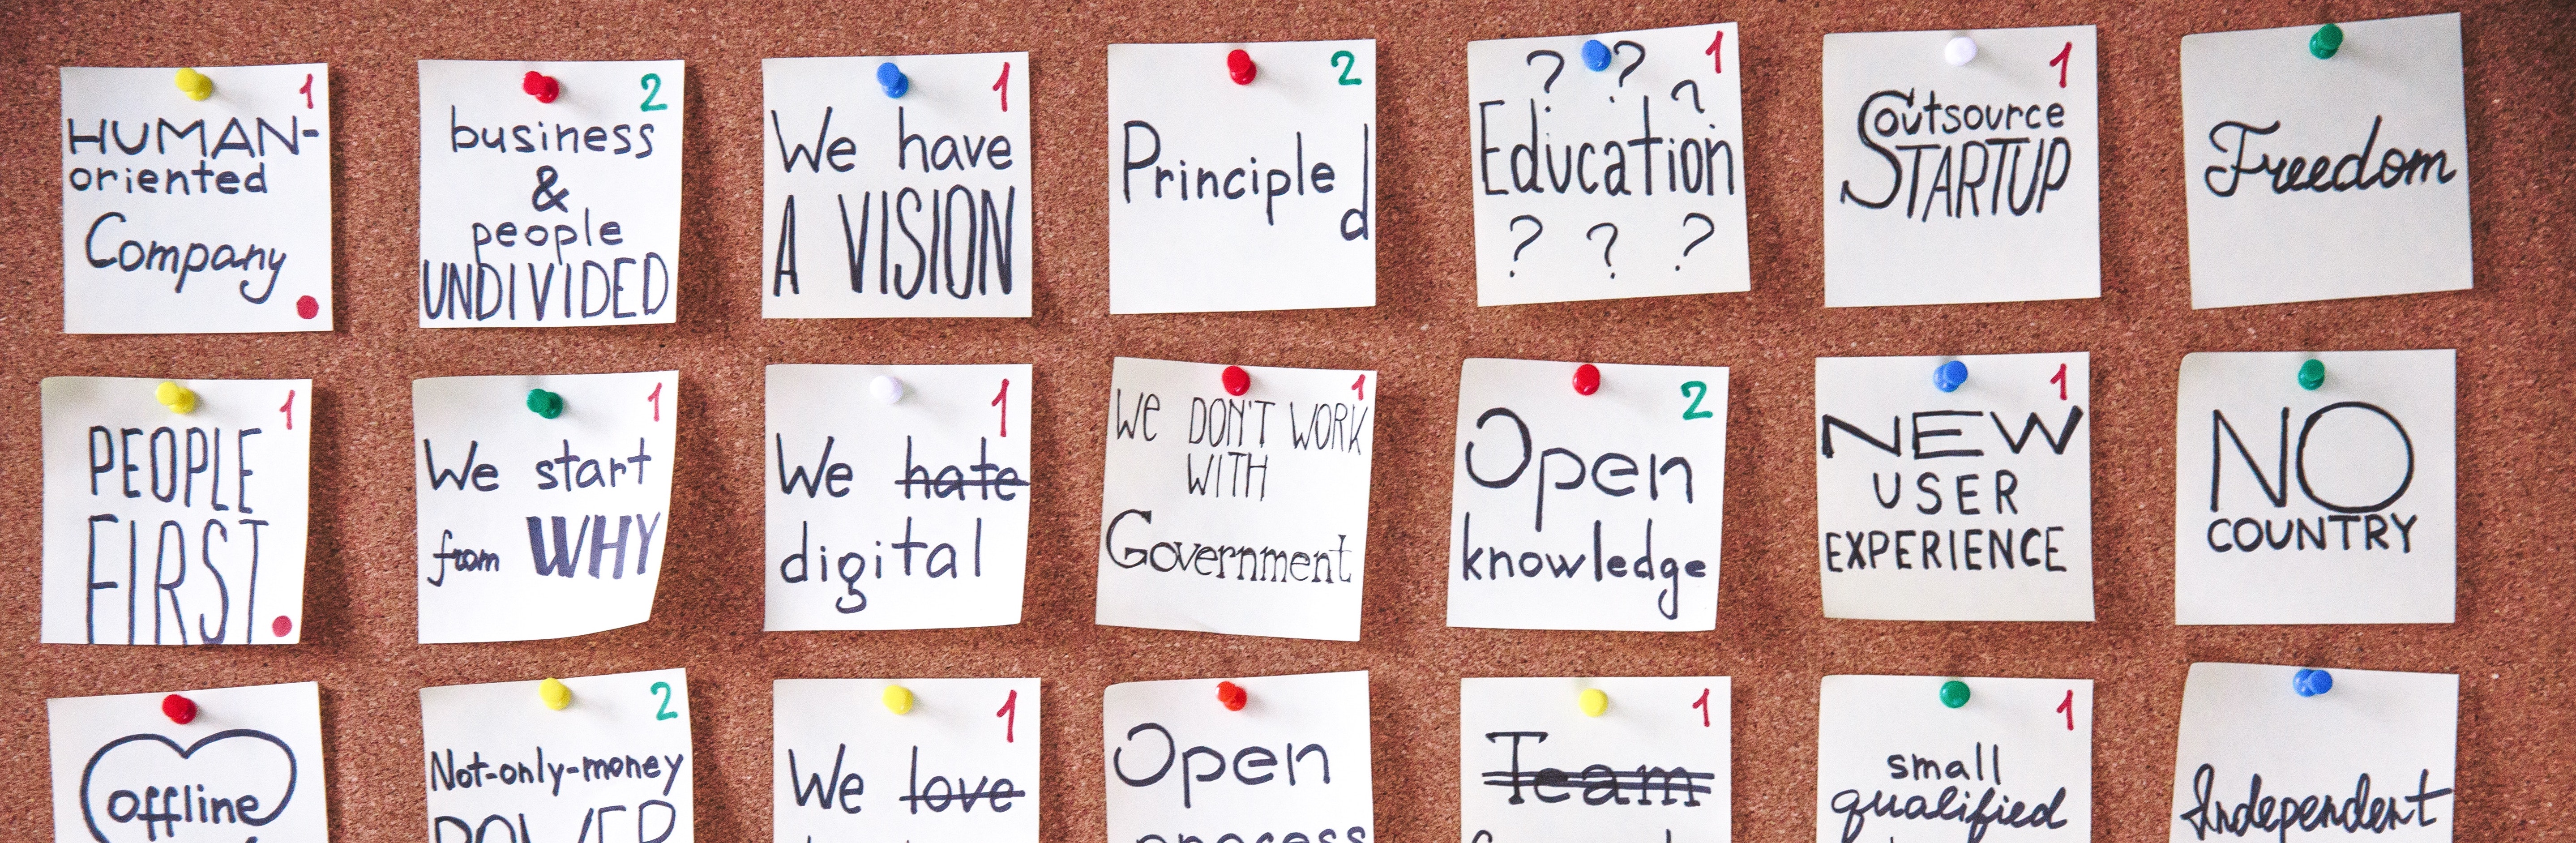 1
HUMAN-
oriented
Company
2
business
&
people
UNDIVIDED
1
We have
A VISION
2
Principle
d
1
? ? ?
Education
? ? ?
1
Outsource
STARTUP
Freedom
1
PEOPLE
FIRST
1
We start
from WHY
1
We hate
digital
1
We DON'T WORK
WITH
Government
2
Open
knowledge
1
NEW
USER
EXPERIENCE
NO
COUNTRY
offline
2
Not-only-money
POWER
1
We love
Open
process
1
Team
1
small
qualified
Independent